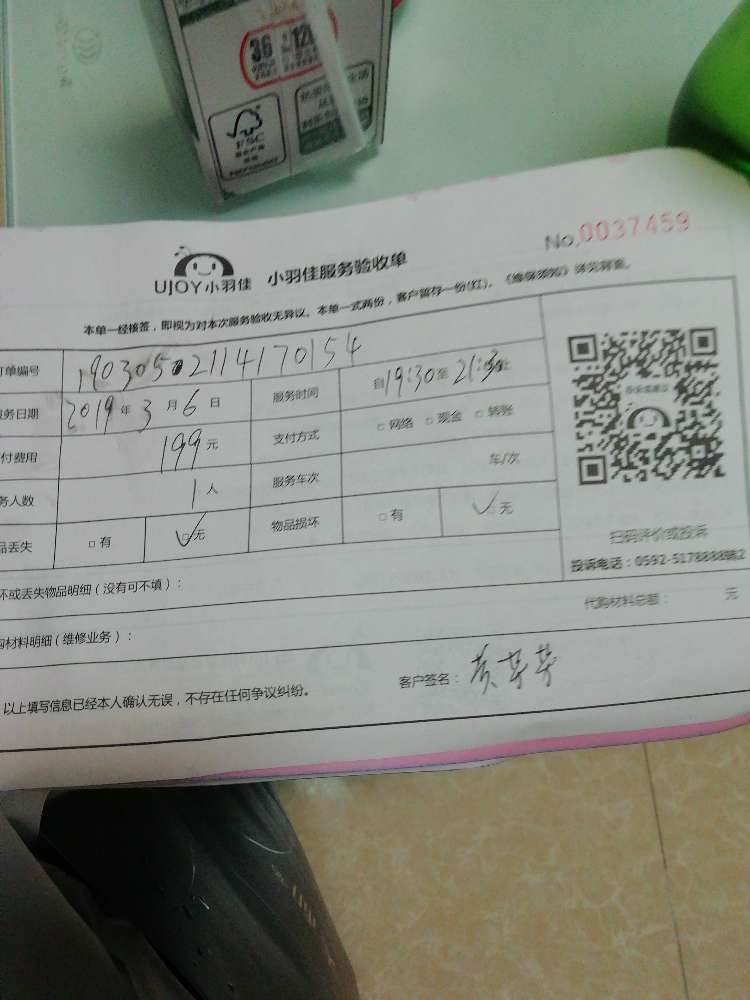 36
FSC
No.0037459
UJOY小羽佳 小羽佳服务验收单
本单一经接签，即视为对本次服务验收无异议。本单一式两份，客户暂存一份(红)。《维保须知》详见背面。
订单编号 19030502114170154
服务日期 2019年3月6日 服务时间 自19:30至21:30止
付费用 199元 支付方式 □网络 □现金 □转账
务人数 1人 服务车次 车/次
品丢失 □有 ☑无 物品损坏 □有 ☑无
扫码评价或投诉
投诉电话：0592-5178888转2
坏或丢失物品明细（没有可不填）：
代购材料总额： 元
购材料明细（维修业务）：
以上填写信息已经本人确认无误，不存在任何争议纠纷。
客户签名：